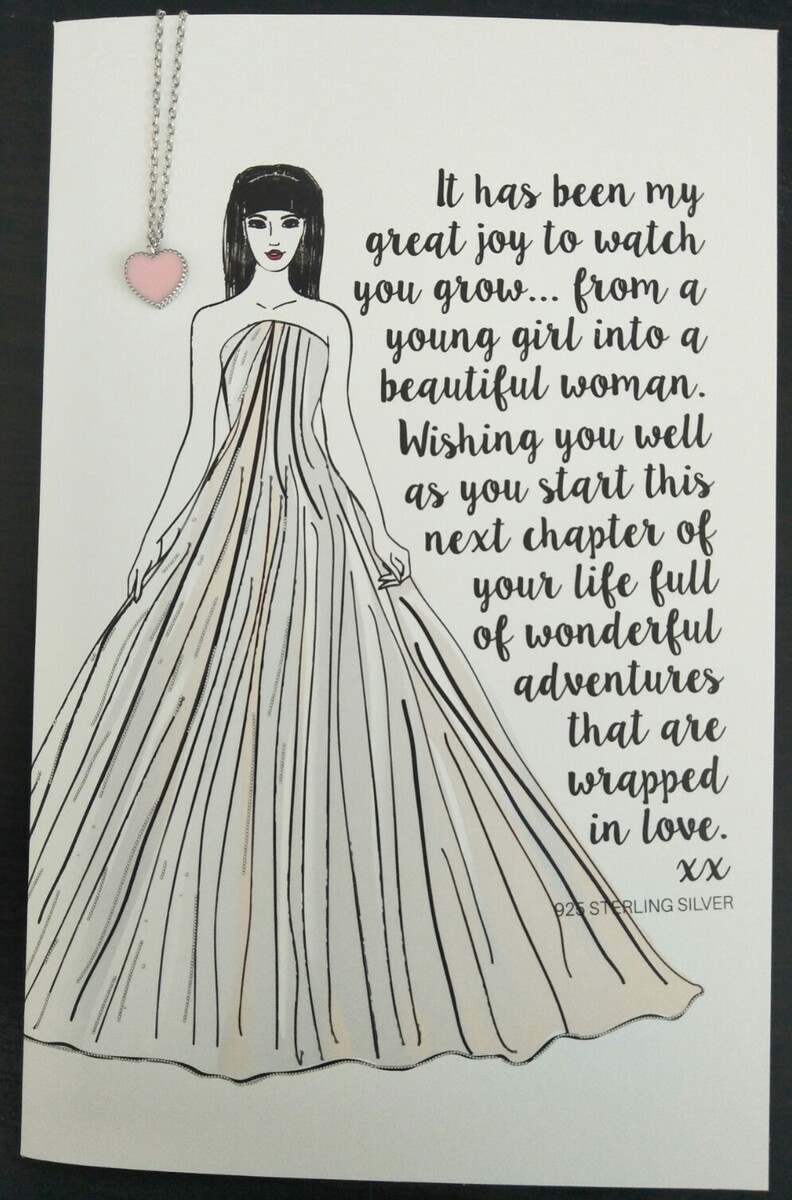 It has been my
great joy to watch
you grow... from a
young girl into a
beautiful woman.
Wishing you well
as you start this
next chapter of
your life full
of wonderful
adventures
that are
wrapped
in love.
xx
925 STERLING SILVER